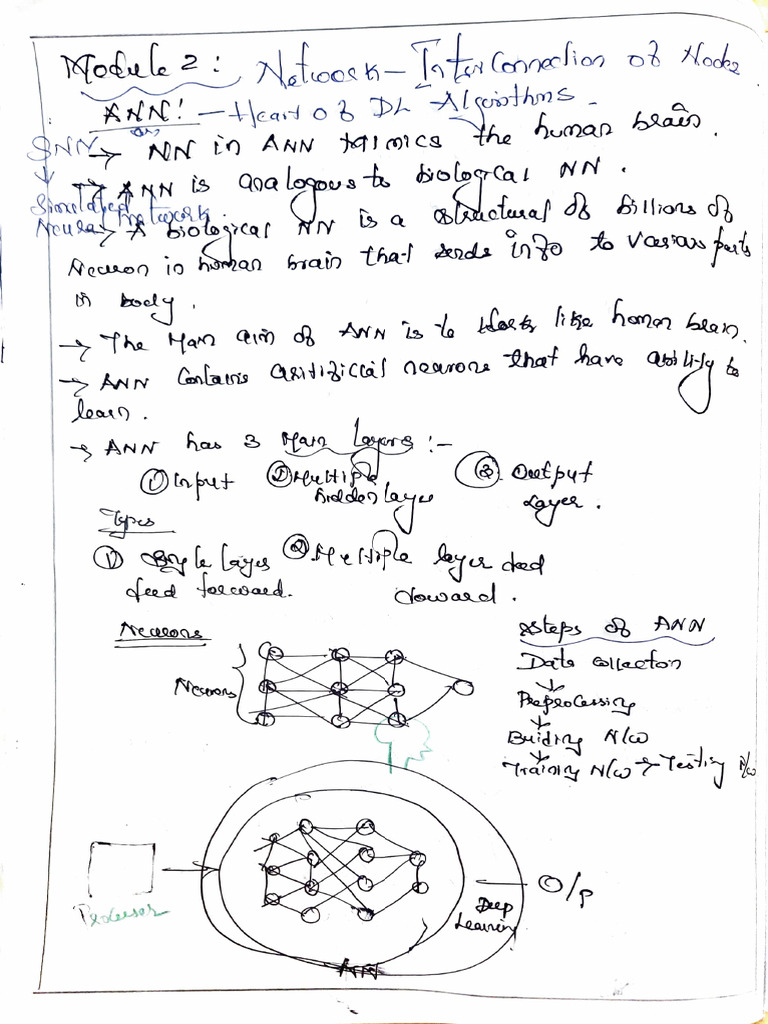 Module 2: Network - InterConnection of Nodes
ANN! - Heart of DL Algorithms.
or
SNN → NN in ANN mimics the human brain.
→ ANN is analogous to biological NN.
Simulated Neural network.
→ A biological NN is a structural of billions of
Neuron in human brain that sends info to various parts
in body.
→ The Main aim of ANN is to like human brain.
→ ANN Contains artificial neurons that have ability to
learn.
→ ANN has 3 Main layers :-
① Input ② Multiple hidden layer ③ Output Layer.
Types
① Single layer feed forward. ② Multiple layer feed
forward.
Neurons
Neurons
Steps of ANN
Data collection
↓
Preprocessing
↓
Building N/w
↓
Training N/w → Testing N/w
Processor
Deep Learning
O/p
ANN